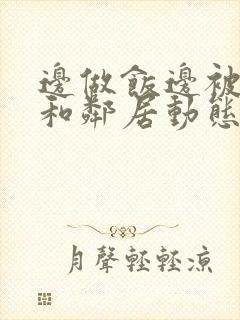 邊做飯邊被
和鄰居動態
月聲輕輕涼